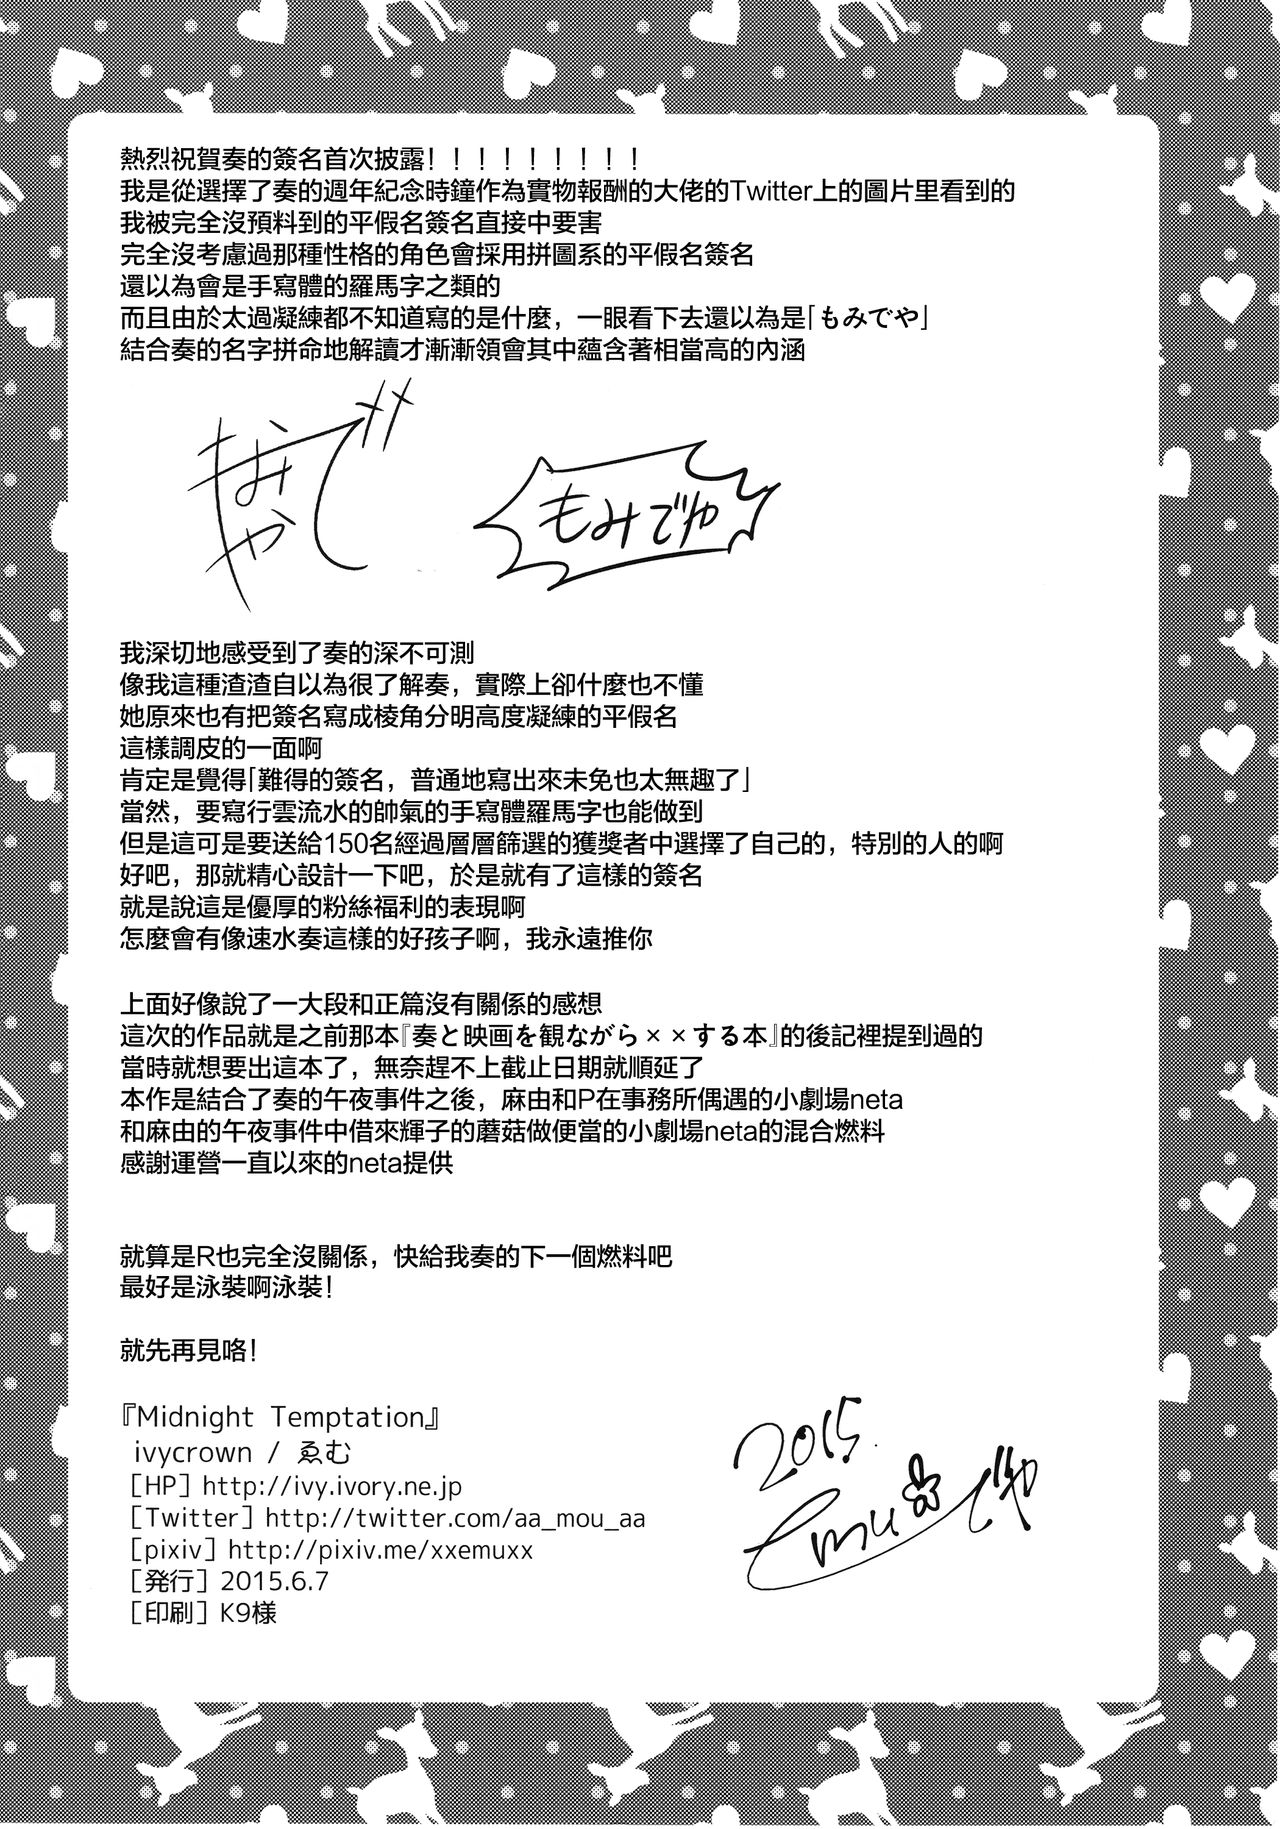 熱烈祝賀奏的簽名首次披露！！！！！！！！！
我是從選擇了奏的週年紀念時鐘作為實物報酬的大佬的Twitter上的圖片里看到的
我被完全沒預料到的平假名簽名直接中要害
完全沒考慮過那種性格的角色會採用拼圖系的平假名簽名
還以為會是手寫體的羅馬字之類的
而且由於太過凝練都不知道寫的是什麼，一眼看下去還以為是「もみでや」
結合奏的名字拼命地解讀才漸漸領會其中蘊含著相當高的內涵
もみでや
我深切地感受到了奏的深不可測
像我這種渣渣自以為很了解奏，實際上卻什麼也不懂
她原來也有把簽名寫成棱角分明高度凝練的平假名
這樣調皮的一面啊
肯定是覺得「難得的簽名，普通地寫出來未免也太無趣了」
當然，要寫行雲流水的帥氣的手寫體羅馬字也能做到
但是這可是要送給150名經過層層篩選的獲獎者中選擇了自己的，特別的人的啊
好吧，那就精心設計一下吧，於是就有了這樣的簽名
就是說這是優厚的粉絲福利的表現啊
怎麼會有像速水奏這樣的好孩子啊，我永遠推你
上面好像說了一大段和正篇沒有關係的感想
這次的作品就是之前那本『奏と映画を観ながら××する本』的後記裡提到過的
當時就想要出這本了，無奈趕不上截止日期就順延了
本作是結合了奏的午夜事件之後，麻由和P在事務所偶遇的小劇場neta
和麻由的午夜事件中借來輝子的蘑菇做便當的小劇場neta的混合燃料
感謝運營一直以來的neta提供
就算是R也完全沒關係，快給我奏的下一個燃料吧
最好是泳裝啊泳裝！
就先再見咯！
『Midnight Temptation』
ivycrown / ゑむ
[HP] http://ivy.ivory.ne.jp
[Twitter] http://twitter.com/aa_mou_aa
[pixiv] http://pixiv.me/xxemuxx
[発行] 2015.6.7
[印刷] K9様
2015.
emu